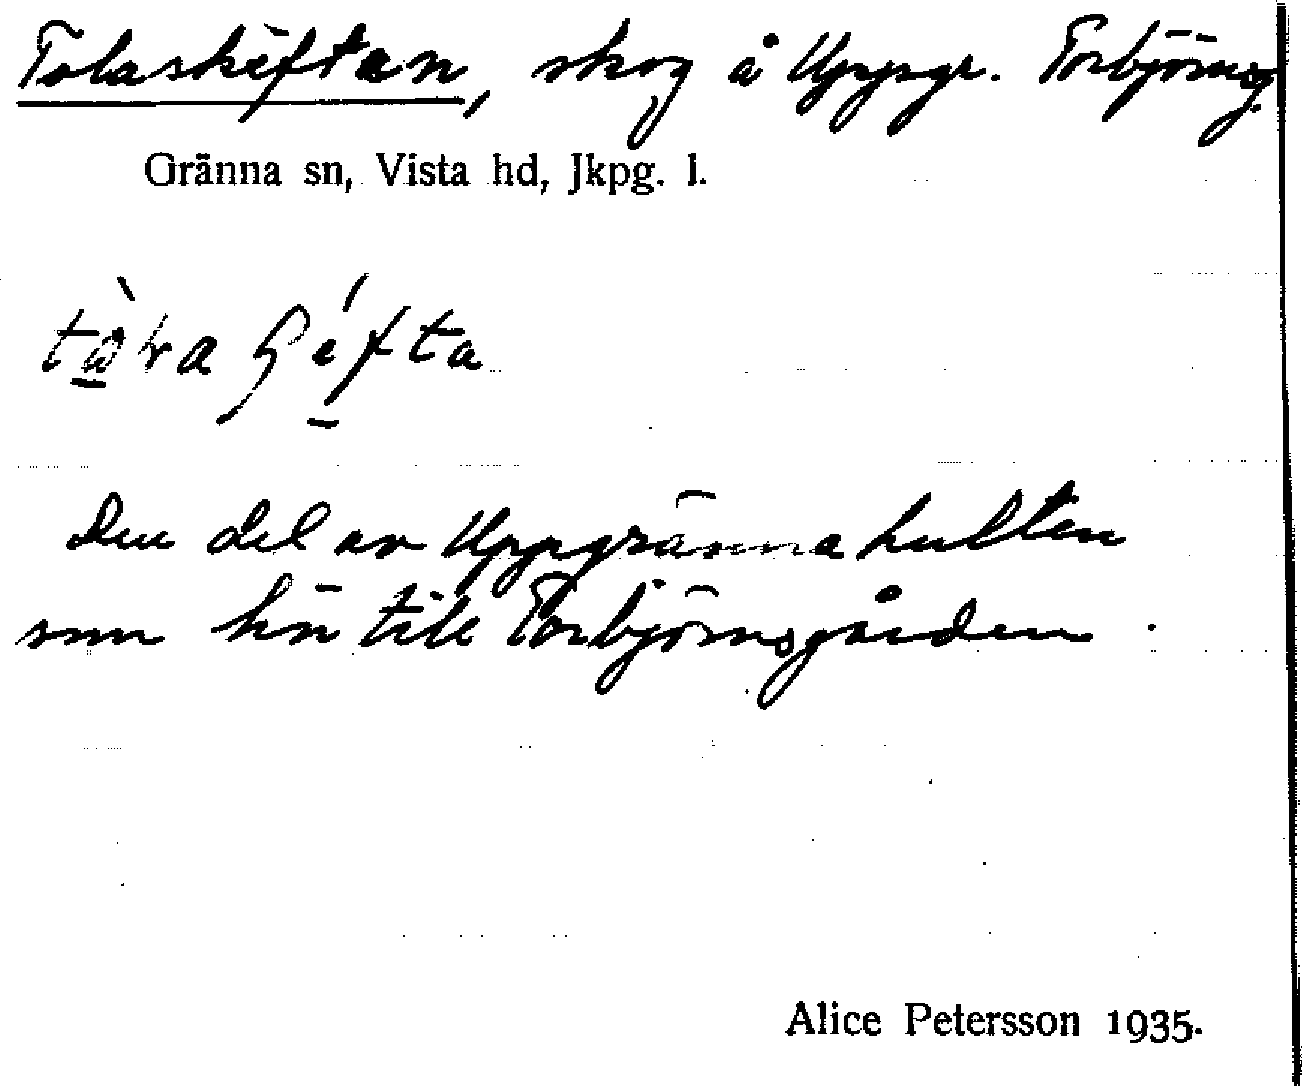 Tolaskèftan, skog å Uppgr. Torbjörnsg.
Gränna sn, Vista hd, Jkpg. l.
Den del av Uppgränna hulten
som hör till Torbjörnsgården.
Alice Petersson 1935.